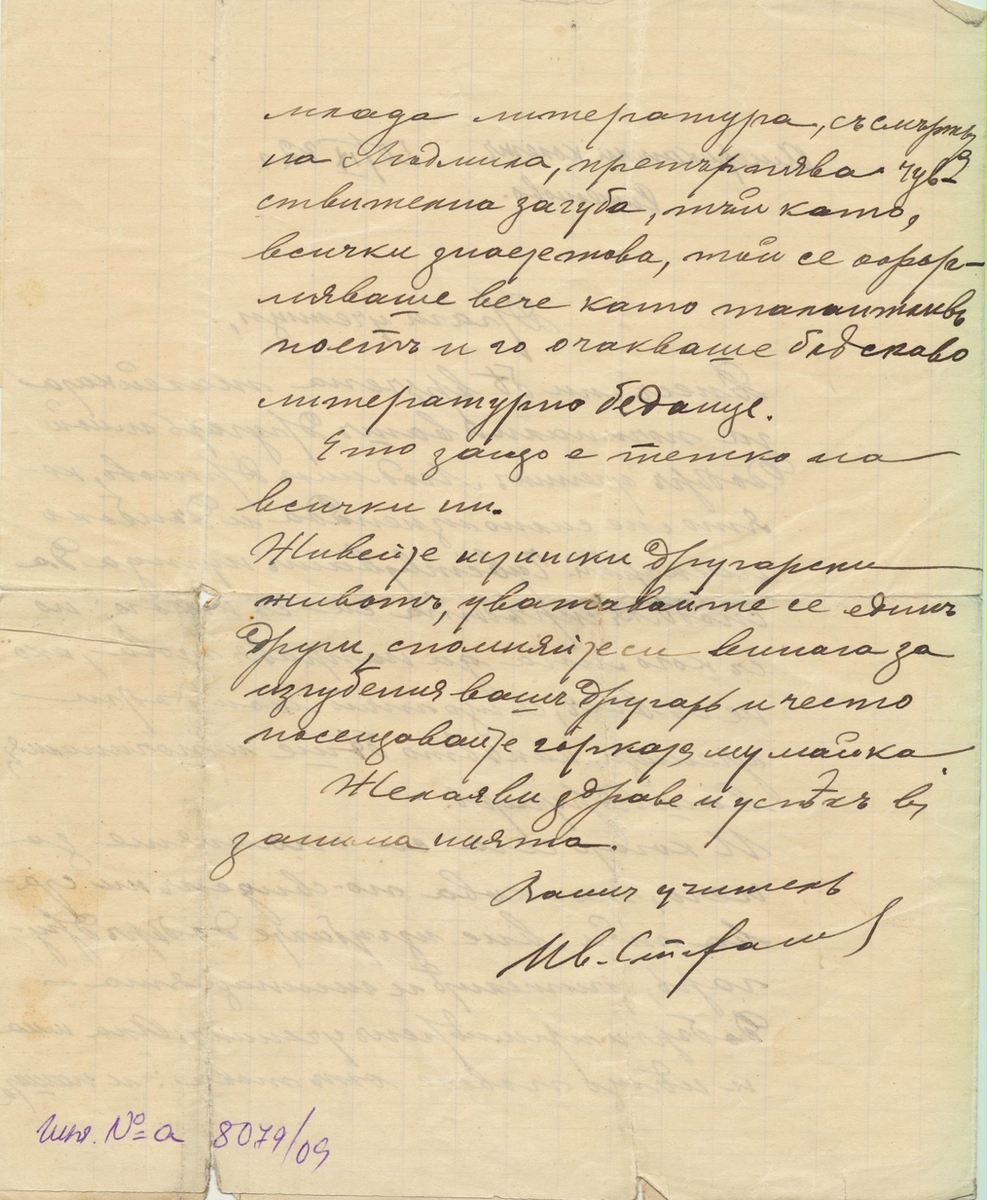 млада литература, съ смъртьта
на Людмила, претърпява чув-
ствителна загуба, тъй като,
всички знаехме това, той се офор-
мяваше вече като талантливъ
поетъ и го очакваше бляскаво
литературно бѫдаще.
Ето защо е тежко на
всички ни.
Живейте истински другарски
животъ, уважавайте се единъ
други, спомняйте си винаги за
изгубения вашъ другарь и често
посещавайте горката му майка.
Желая ви здраве и успѣхъ въ
заниманията.
Вашъ учитель
Ив. Стефанов
Инв. № а 8079/09